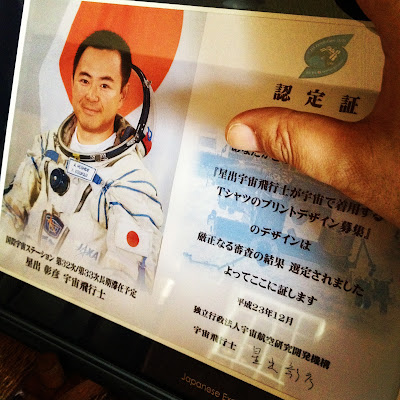 認定証
『星出宇宙飛行士が宇宙で着用する
Tシャツのプリントデザイン募集』
のデザインは
厳正なる審査の結果 選定されました
よってここに証します
平成23年12月
独立行政法人宇宙航空研究開発機構
宇宙飛行士 星出彰彦
国際宇宙ステーション 第32次/第33次長期滞在予定
星出 彰彦 宇宙飛行士
JAXA
Japanese